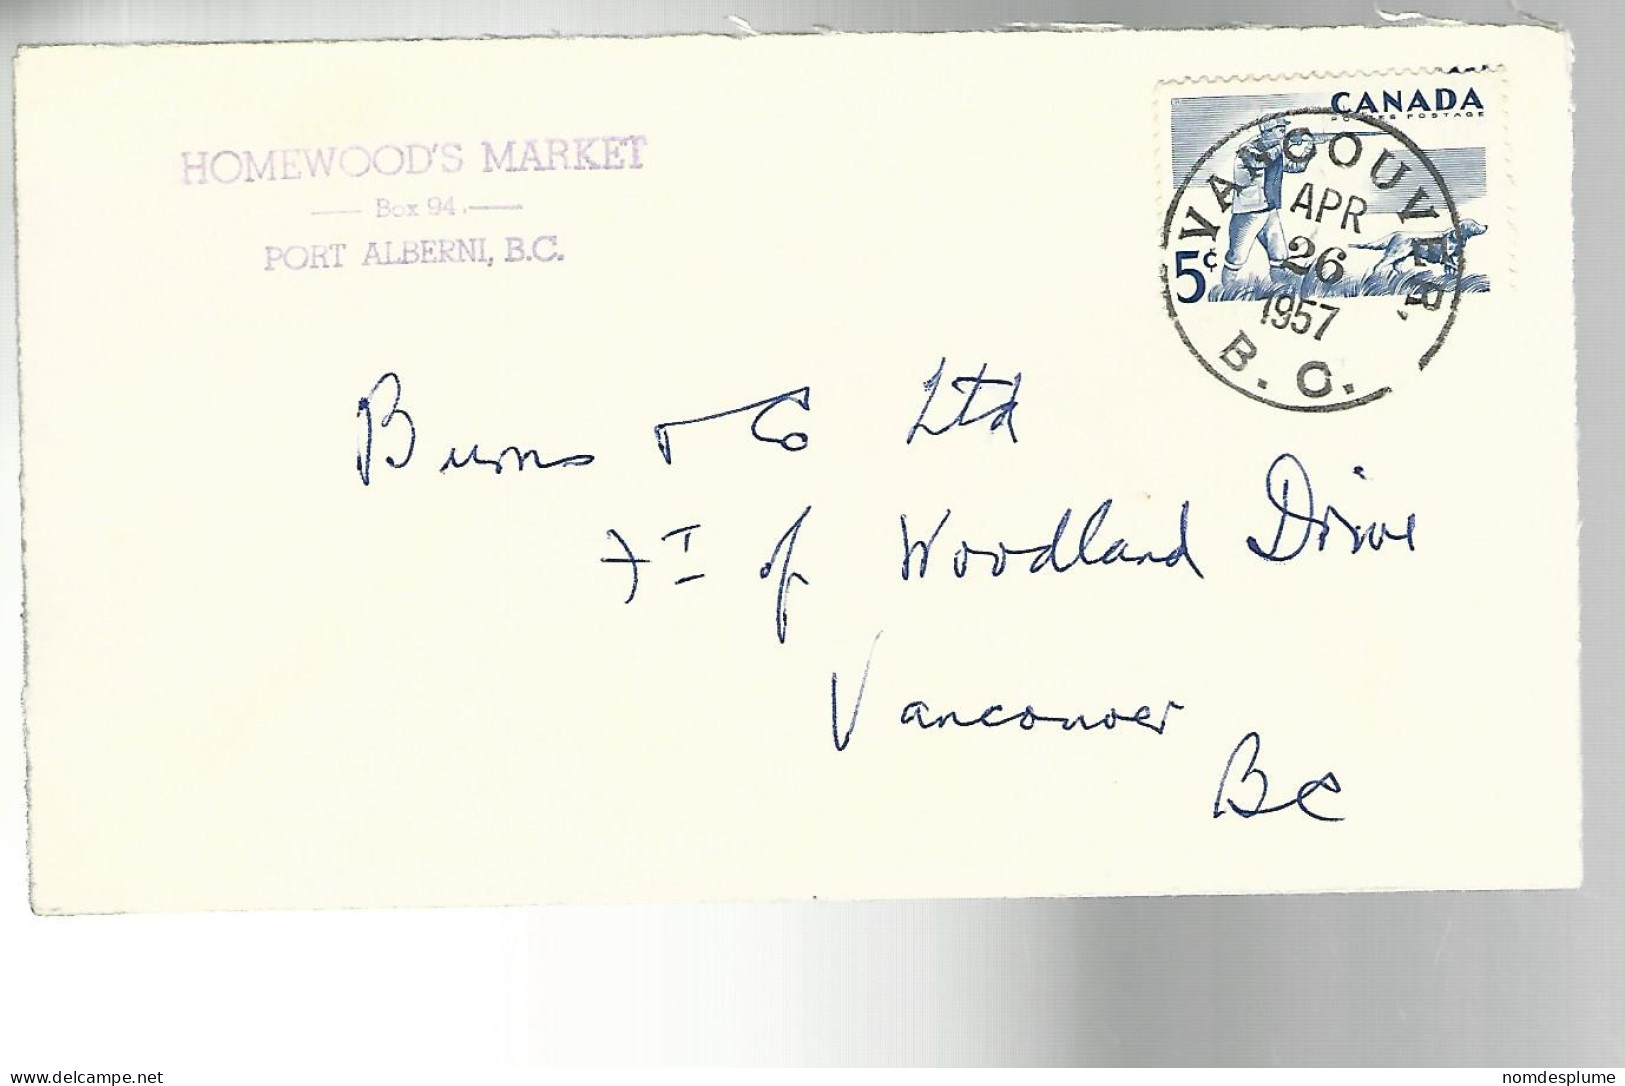 HOMEWOOD'S MARKET
Box 94.
PORT ALBERNI, B.C.
CANADA
POSTES POSTAGE
5¢
VANCOUVER,
APR
26
1957
B. C.
Burns + Co Ltd
Ft of Woodland Drive
Vancouver
BC
delcampe.net
nomdesplume